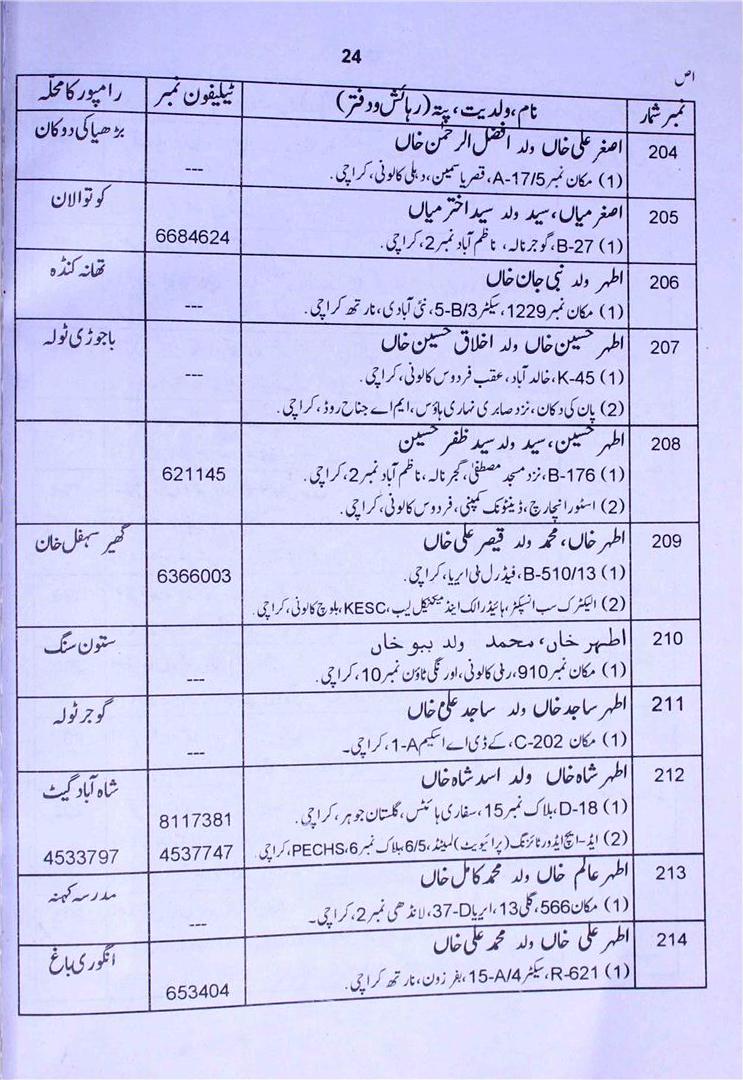 24
اص
نمبر شمار نام، ولدیت، پتہ (رہائش و دفتر) ٹیلیفون نمبر رامپور کا محلّہ
204 اصغر علی خاں ولد افضل الرحمٰن خاں بڑھیا کی دوکان
(1) مکان نمبر A-17/5، قصر یاسمین، دہلی کالونی، کراچی۔ ---
205 اصغر میاں، سید ولد سید اختر میاں کوتوالان
(1) B-27، گوجر نالہ، ناظم آباد نمبر 2، کراچی۔ 6684624
206 اطہر ولد نبی جان خاں تھانہ کنڈہ
(1) مکان نمبر 1229، سیکٹر 5-B/3، نئی آبادی، نارتھ کراچی۔ ---
207 اطہر حسین خاں ولد اخلاق حسین خاں باجوڑی ٹولہ
(1) K-45، خالد آباد، عقب فردوس کالونی، کراچی۔ ---
(2) پان کی دکان، نزد صابری نہاری ہاؤس، ایم اے جناح روڈ، کراچی۔
208 اطہر حسین، سید ولد سید ظفر حسین
(1) B-176، نزد مسجد مصطفیٰ، گجر نالہ، ناظم آباد نمبر 2، کراچی۔ 621145
(2) اسٹور انچارج، ڈینٹونک کمپنی، فردوس کالونی، کراچی۔
209 اطہر خاں، محمد ولد قیصر علی خاں گھیر سہفل خان
(1) B-510/13، فیڈرل بی ایریا، کراچی۔ 6366003
(2) الیکٹرک سب انسپکٹر، ہائیڈرالک اینڈ میکنیکل لیب، KESC، بلوچ کالونی، کراچی۔
210 اطہر خاں، محمد ولد ببو خاں ستون سنگ
(1) مکان نمبر 910، رملی کالونی، اورنگی ٹاؤن نمبر 10، کراچی۔ ---
211 اطہر ساجد خاں ولد ساجد علی خاں گوجر ٹولہ
(1) مکان C-202، کے ڈی اے اسکیم 1-A، کراچی۔ ---
212 اطہر شاہ خاں ولد اسد شاہ خاں شاہ آباد گیٹ
(1) D-18، بلاک نمبر 15، سفاری ہائٹس، گلستان جوہر، کراچی۔ 8117381
(2) ایڈ-ایچ ایڈورٹائزنگ (پرائیویٹ) لمیٹڈ، 6/5، بلاک نمبر 6، PECHS، کراچی۔ 4537747 4533797
213 اطہر عالم خاں ولد محمد کامل خاں مدرسہ کہنہ
(1) مکان 566، گلی 13، ایریا 37-D، لانڈھی نمبر 2، کراچی۔ ---
214 اطہر علی خاں ولد محمد علی خاں انگوری باغ
(1) R-621، سیکٹر 15-A/4، بفر زون، نارتھ کراچی۔ 653404